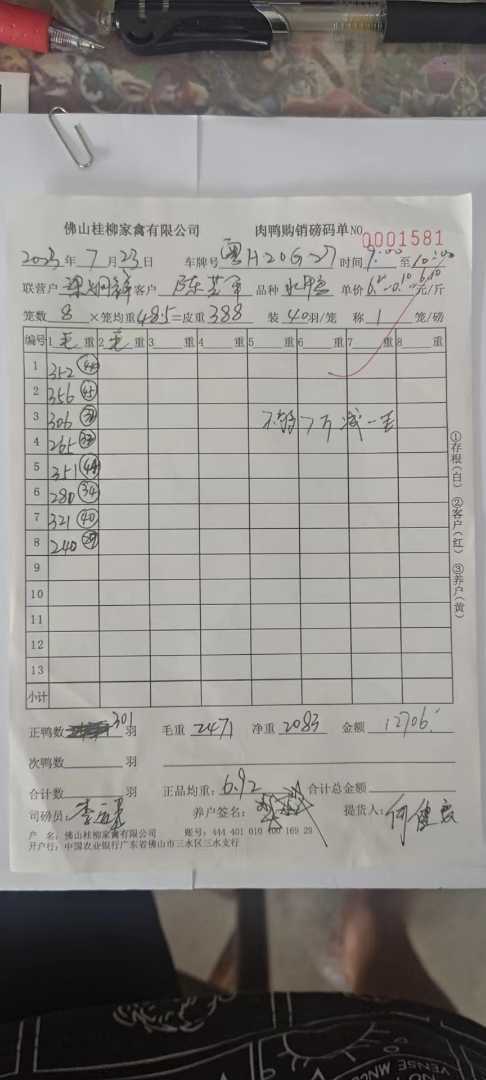 佛山桂柳家禽有限公司 肉鸭购销磅码单NO 0001581
2023年7月23日 车牌号 粤H·20G·27 时间 9:00 至 10:00
联营户 客户 品种 单价 元/斤
笼数 8 ×笼均重 48.5 =皮重 388 装 40 羽/笼 称 1 笼/磅
编号 1 毛 重 2 毛 重 3 重 4 重 5 重 6 重 7 重 8 重
1 352
2 356 45
3 306 不够7斤减一毛
4 265
5 351
6 280 34
7 321 40
8 240
9
10
11
12
13
小计
①存根(白) ②客户(红) ③养户(黄)
正鸭数 301 羽 毛重 2471 净重 2083 金额 12706
次鸭数 羽
合计数 羽 正品均重: 6.92 合计总金额
司磅员: 养户签名: 提货人: 何健
户 名: 佛山桂柳家禽有限公司 账号: 444 401 010 400 169 29
开户行: 中国农业银行广东省佛山市三水区三水支行
VENSE MNC